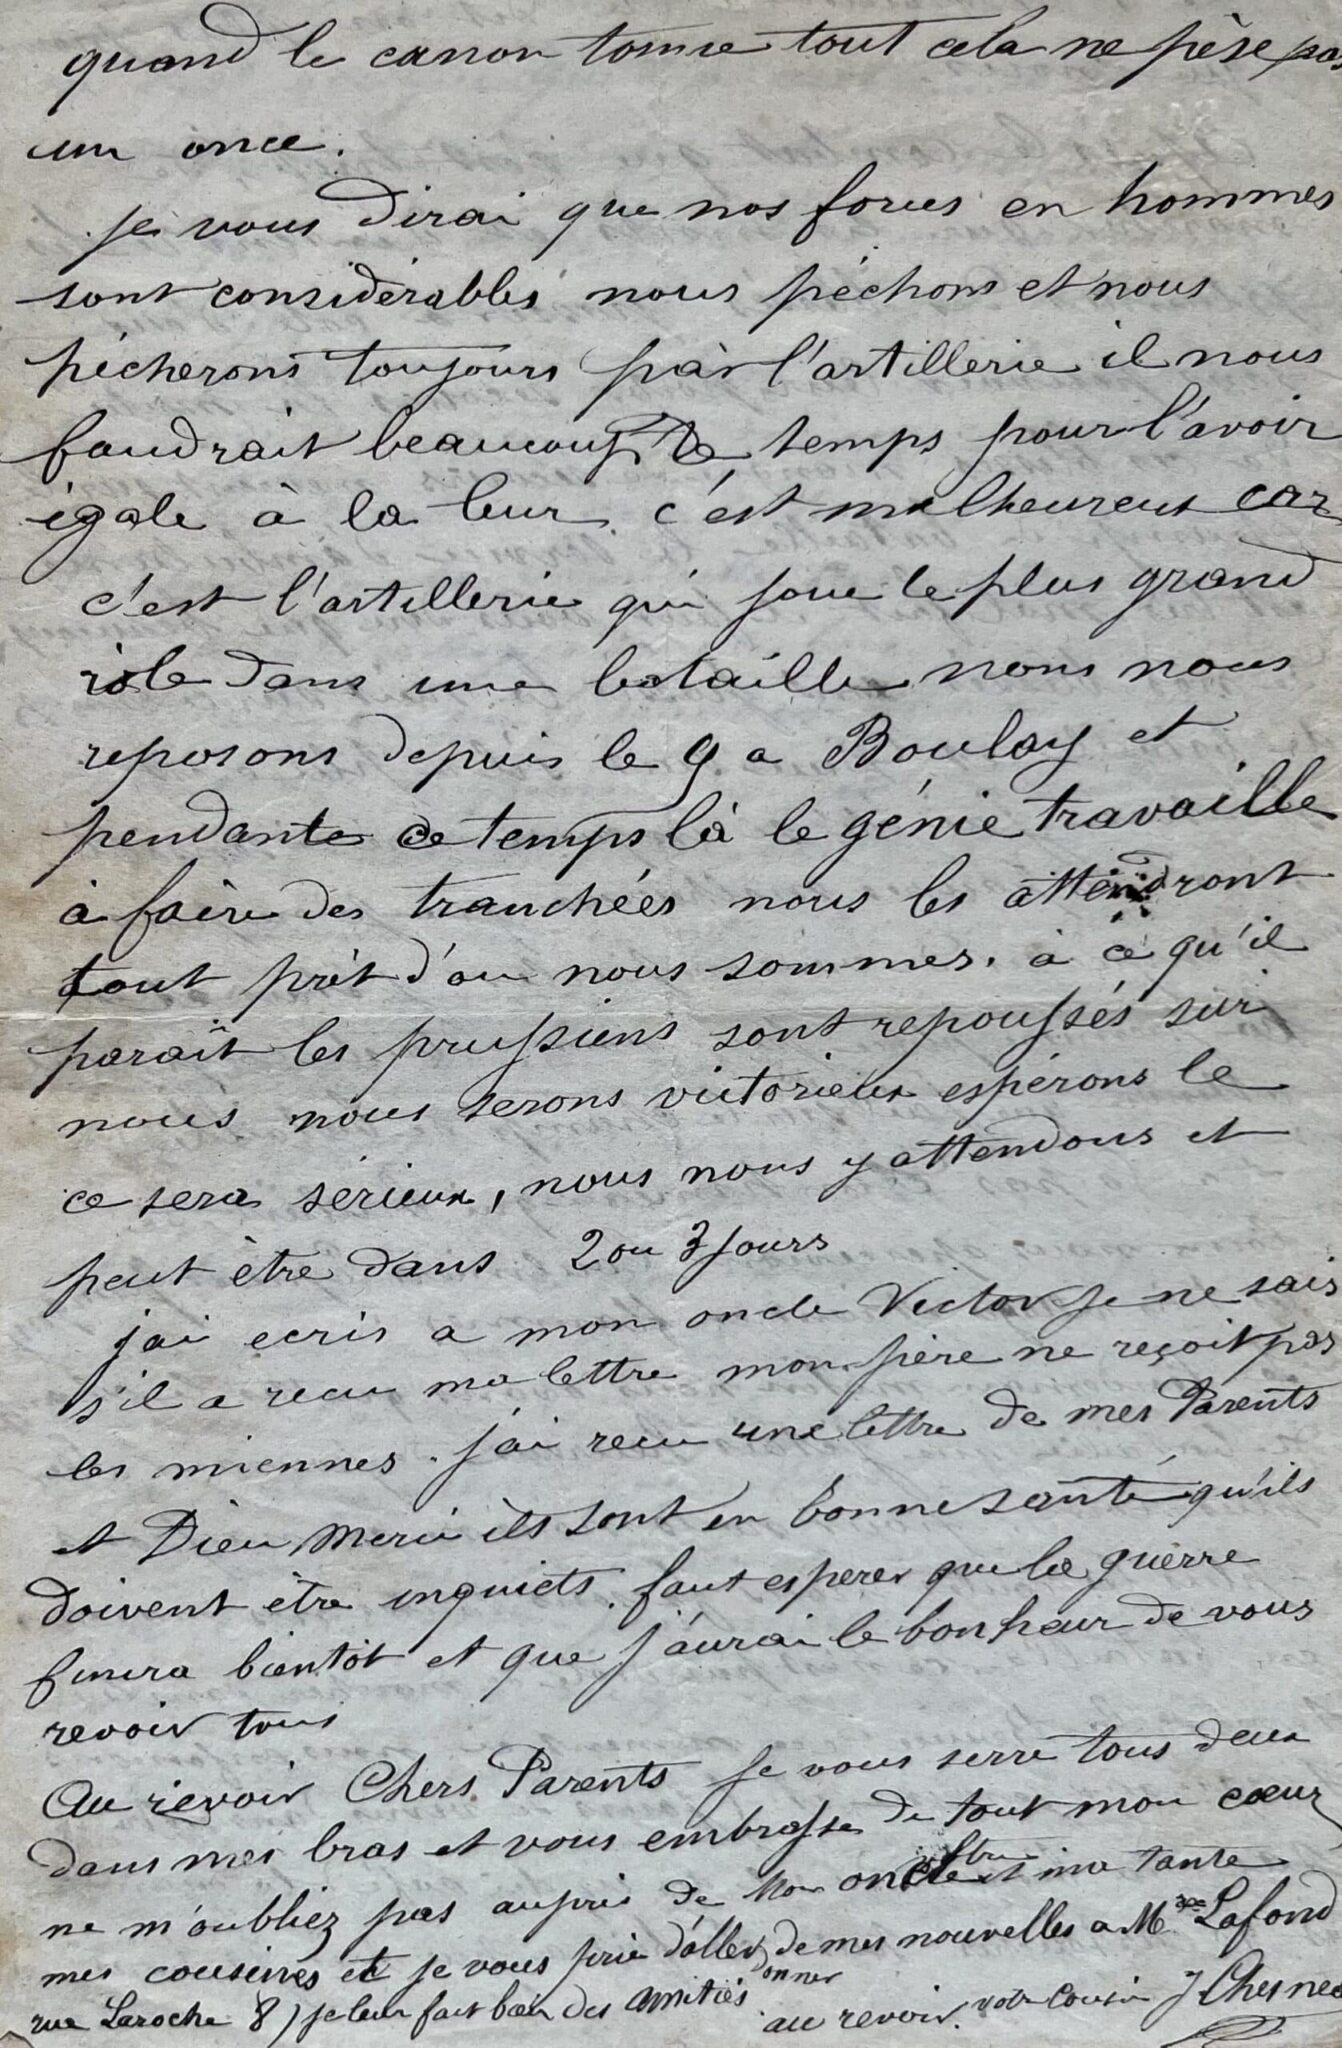 quand le canon tonne tout cela ne pèse pas
un once.
je vous dirai que nos forces en hommes
sont considérables nous péchons et nous
pécherons toujours par l'artillerie il nous
faudrait beaucoup de temps pour l'avoir
égale à la leur. c'est malheureux car
c'est l'artillerie qui joue le plus grand
role dans une bataille nous nous
reposons depuis le 9 a Boulay et
pendante ce temps là le génie travaille
à faire des tranchées nous les attendront
tout prêt d'ou nous sommes. à ce qu'il
paraît les prussiens sont repoussés sur
nous nous serons victorieux espérons le
ce sera sérieux, nous nous y attendons et
peut être dans 2 ou 3 jours
j'ai ecris a mon oncle Victor je ne sais
s'il a recu ma lettre mon père ne reçoit pas
les miennes. j'ai recu une lettre de mes Parents
et Dieu merci ils sont en bonne santé qu'ils
doivent être inquiets. faut esperer que la guerre
finira bientôt et que j'aurai le bonheur de vous
revoir tous
Au revoir Chers Parents je vous serre tous deux
dans mes bras et vous embrasse de tout mon cœur
ne m'oubliez pas auprès de mon oncle et ma tante
mes cousines et je vous prie d'aller donner de mes nouvelles a M Lafond
rue Laroche 8) je leur fait bien des amitiés
au revoir. votre cousin J Chesneau